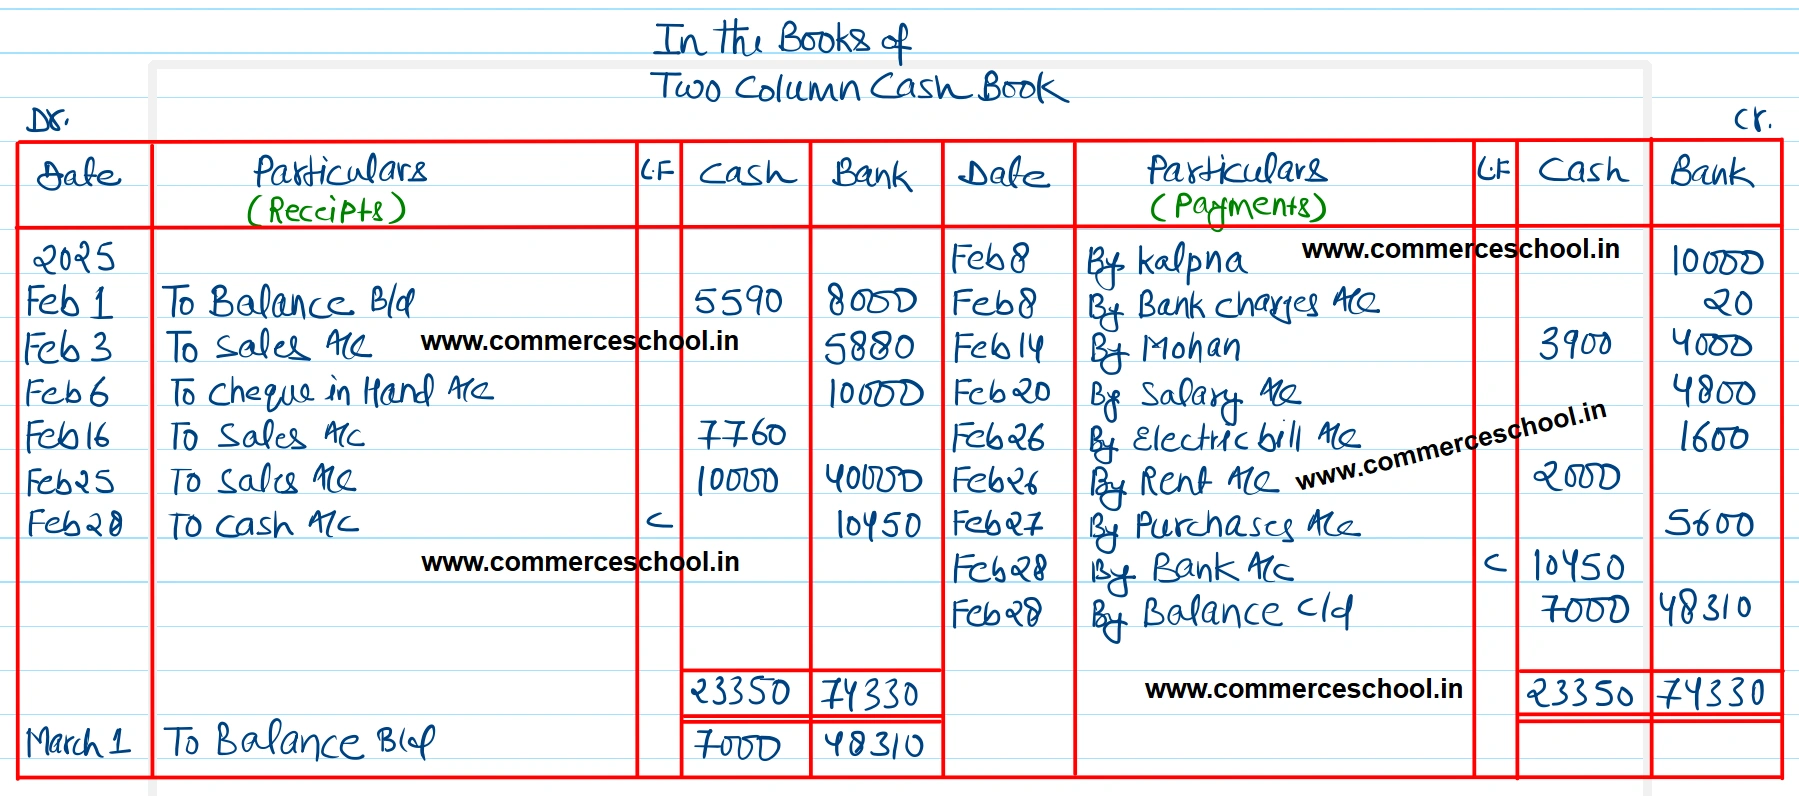 In the Books of
Two Column Cash Book
Dr. Cr.
Date Particulars L.F Cash Bank Date Particulars L.F Cash Bank
(Receipts) (Payments)
2025 Feb 8 By Kalpna www.commerceschool.in 10000
Feb 1 To Balance B/d 5590 8000 Feb 8 By Bank charges A/c 20
Feb 3 To Sales A/c www.commerceschool.in 5880 Feb 14 By Mohan 3900 4000
Feb 6 To Cheque in Hand A/c 10000 Feb 20 By Salary A/c 4800
Feb 16 To Sales A/c 7760 Feb 26 By Electric bill A/c 1600
Feb 25 To Sales A/c 10000 40000 Feb 26 By Rent A/c www.commerceschool.in 2000
Feb 28 To Cash A/c C 10450 Feb 27 By Purchases A/c 5600
www.commerceschool.in Feb 28 By Bank A/c C 10450
Feb 28 By Balance c/d 7000 48310
23350 74330 www.commerceschool.in 23350 74330
March 1 To Balance B/d 7000 48310